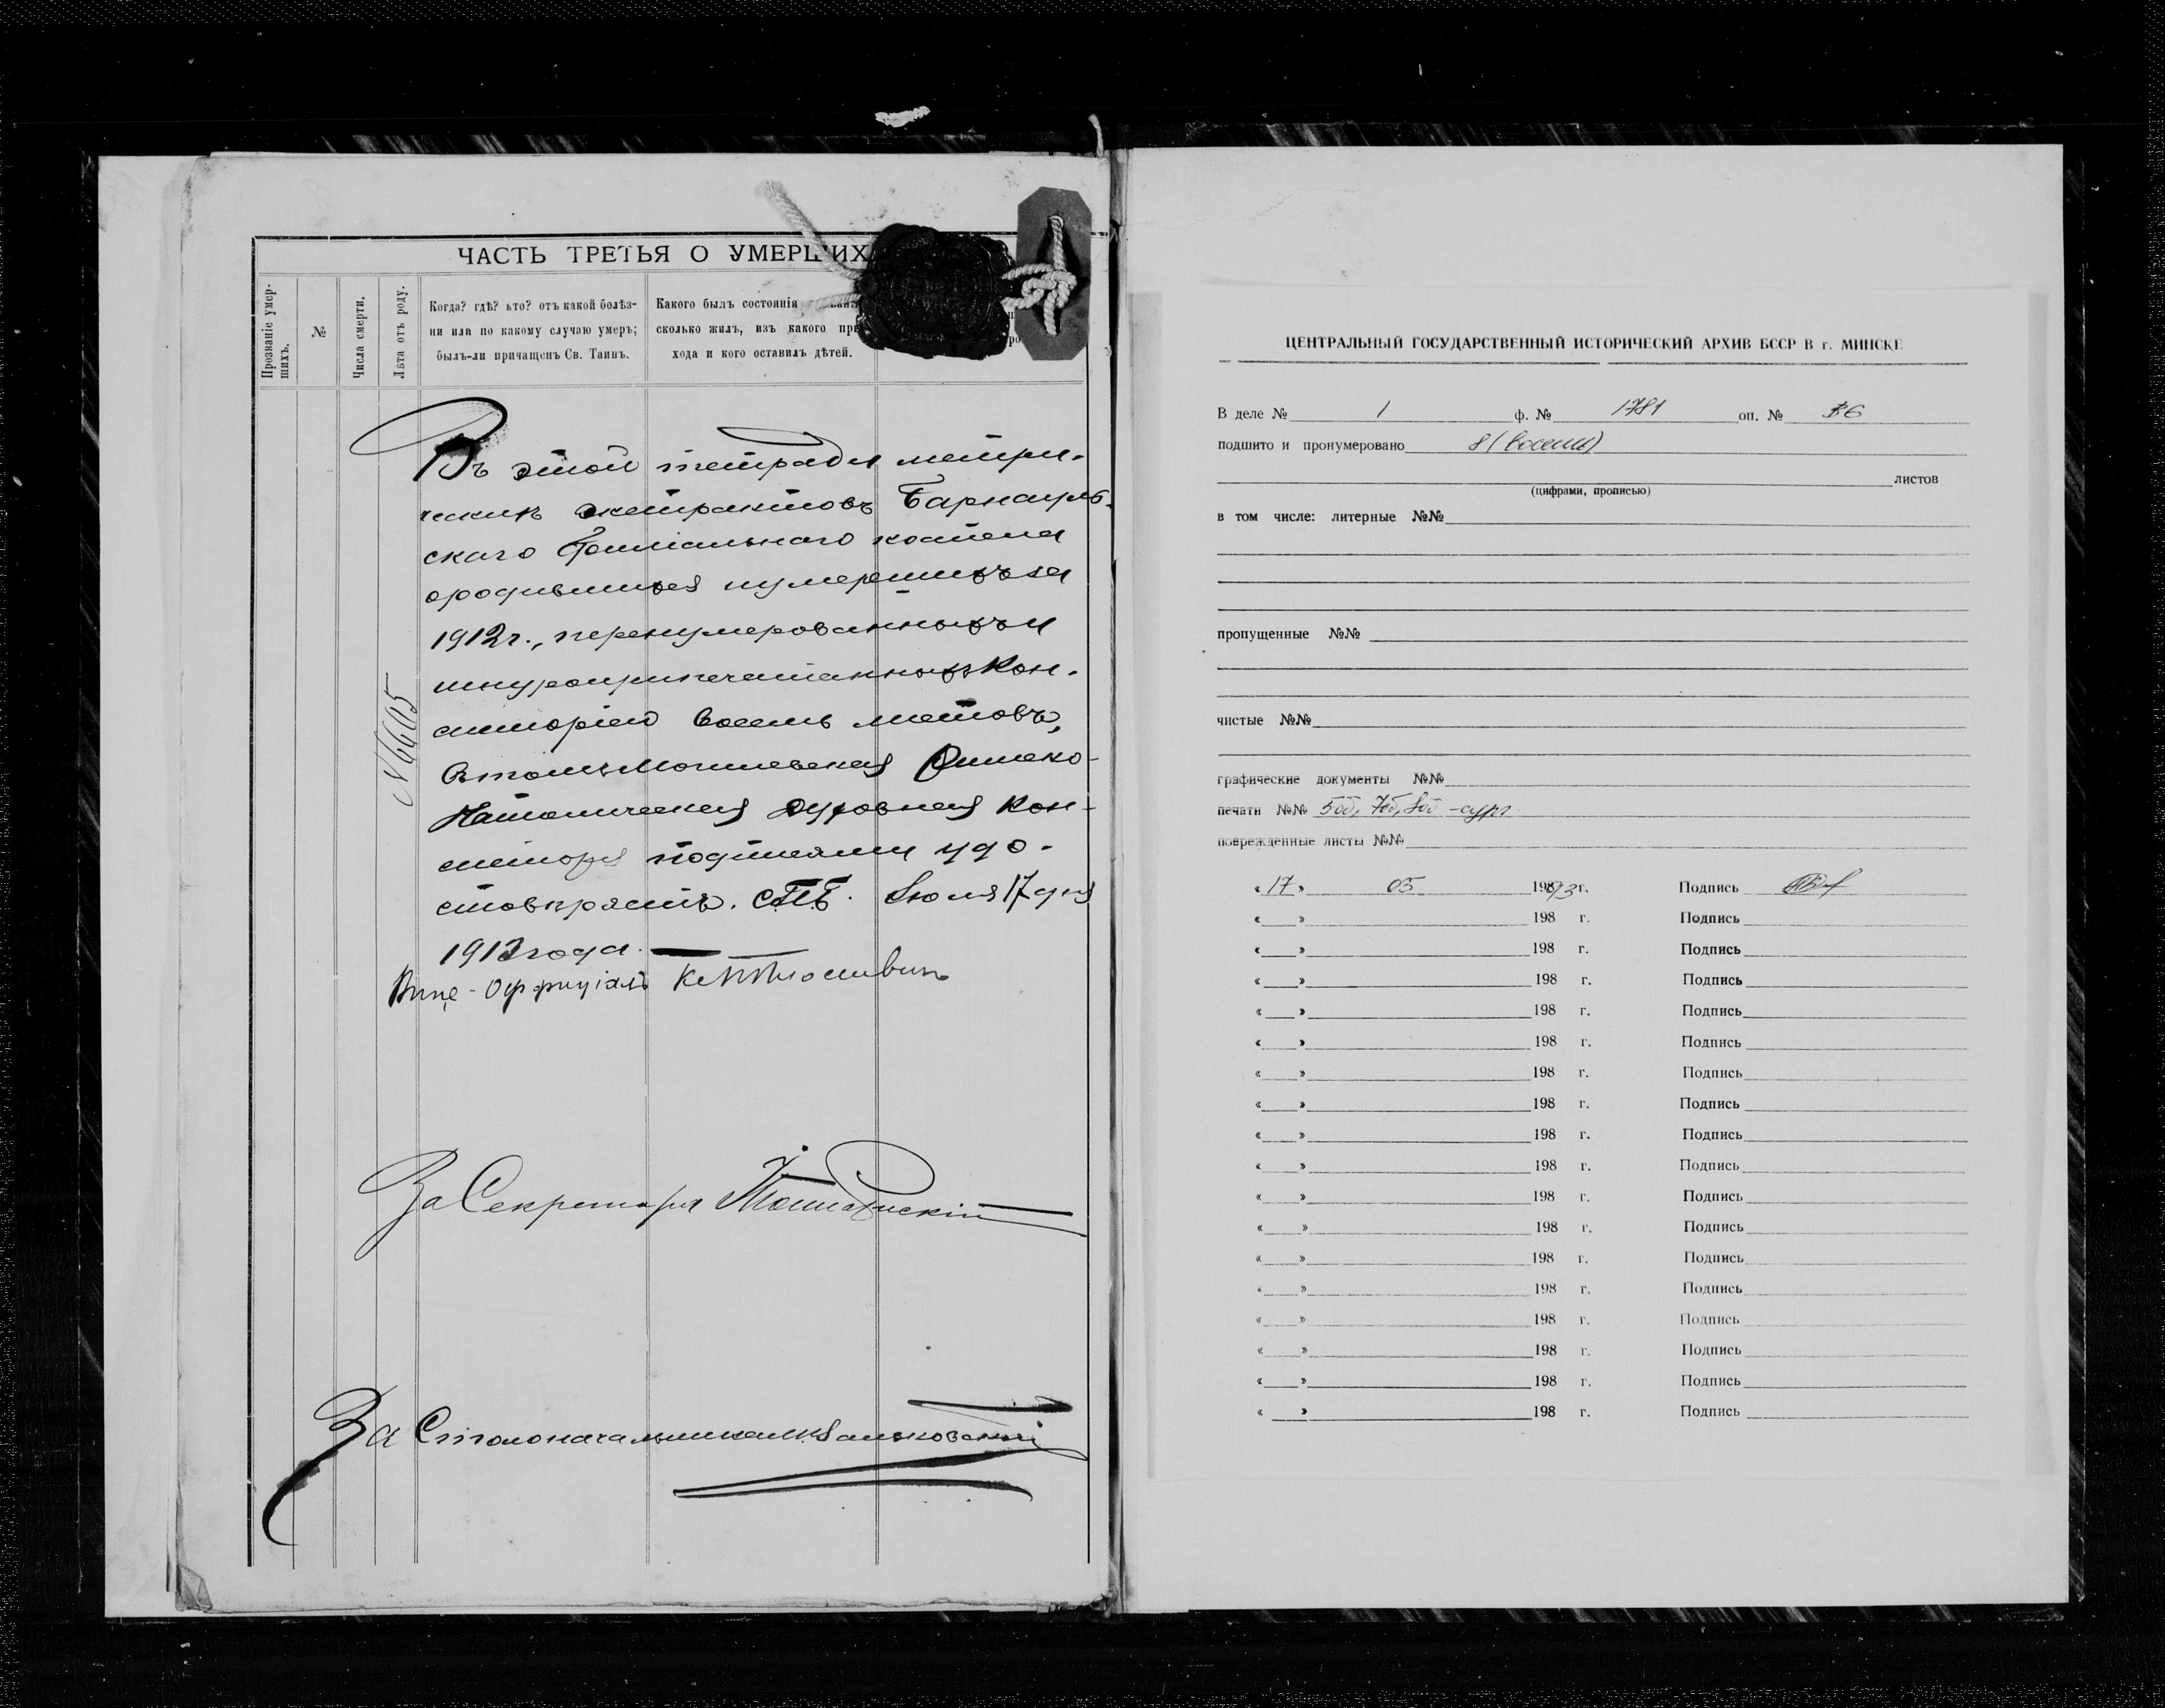 ЧАСТЬ ТРЕТЬЯ О УМЕРШИХ
Прозваніе умер-
шихъ.
№
Числа смерти.
Лѣта отъ роду.
Когда? гдѣ? кто? отъ какой болѣз-
ни или по какому случаю умеръ;
былъ-ли причащенъ Св. Таинъ.
Какого былъ состоянія
сколько жилъ, изъ какого при
хода и кого оставилъ дѣтей.
Въ этой тетради метри-
ческихъ экстрактовъ Барнауль-
скаго филіальнаго костела
о родившихся и умершихъ за
1912 г., перенумерованныхъ и
шнуроприпечатанныхъ Кон-
систоріею восемь листовъ,
въ томъ Могилевская Римско-
Католическая Духовная Кон-
систорія подписями удо-
стовѣряетъ. СПБ. Іюля 17 дня
1913 года.
№ 6605
Вице-Оффиціалъ
За Секретаря
За Столоначальника
ЦЕНТРАЛЬНЫЙ ГОСУДАРСТВЕННЫЙ ИСТОРИЧЕСКИЙ АРХИВ БССР В г. МИНСКЕ
В деле № 1 ф. № 1781 оп. № 36
подшито и пронумеровано 8 (восемь)
листов
(цифрами, прописью)
в том числе: литерные №№
пропущенные №№
чистые №№
графические документы №№
печати №№ 5об, 7об, 8об - сург.
поврежденные листы №№
« 17 » 05 19893 г. Подпись
« » 198 г. Подпись
« » 198 г. Подпись
« » 198 г. Подпись
« » 198 г. Подпись
« » 198 г. Подпись
« » 198 г. Подпись
« » 198 г. Подпись
« » 198 г. Подпись
« » 198 г. Подпись
« » 198 г. Подпись
« » 198 г. Подпись
« » 198 г. Подпись
« » 198 г. Подпись
« » 198 г. Подпись
« » 198 г. Подпись
« » 198 г. Подпись
« » 198 г. Подпись